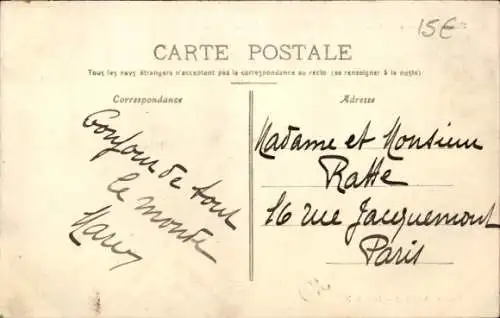 15€
CARTE POSTALE
Tous les pays étrangers n'acceptent pas la correspondance au recto (se renseigner à la poste)
Correspondance
Bonjour de tout
le monde
Marie
Adresse
Madame et Monsieur
Ratte
16 rue Jacquemont
Paris